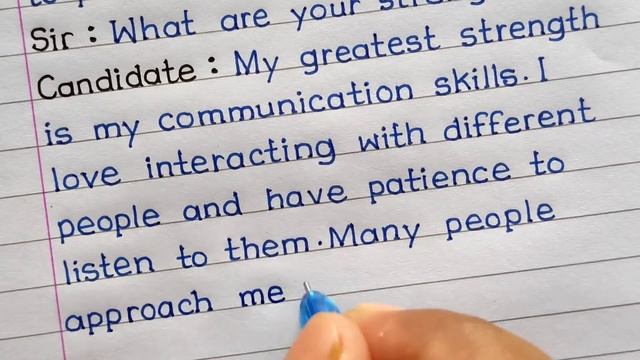 Sir : What are your
Candidate : My greatest strength
is my communication skills. I
love interacting with different
people and have patience to
listen to them. Many people
approach me